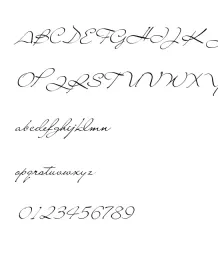 ABCDEFGHIJK
OPQRSTUVWXY
abcdefghijklmn
opqrstuvwxyz
0123456789